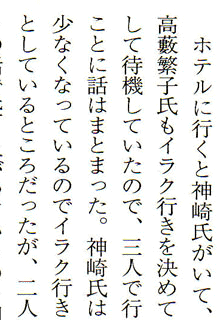 ホテルに行くと神崎氏がいて、
高藪繁子氏もイラク行きを決めて
して待機していたので、三人で行
ことに話はまとまった。神崎氏は
少なくなっているのでイラク行き
としているところだったが、二人